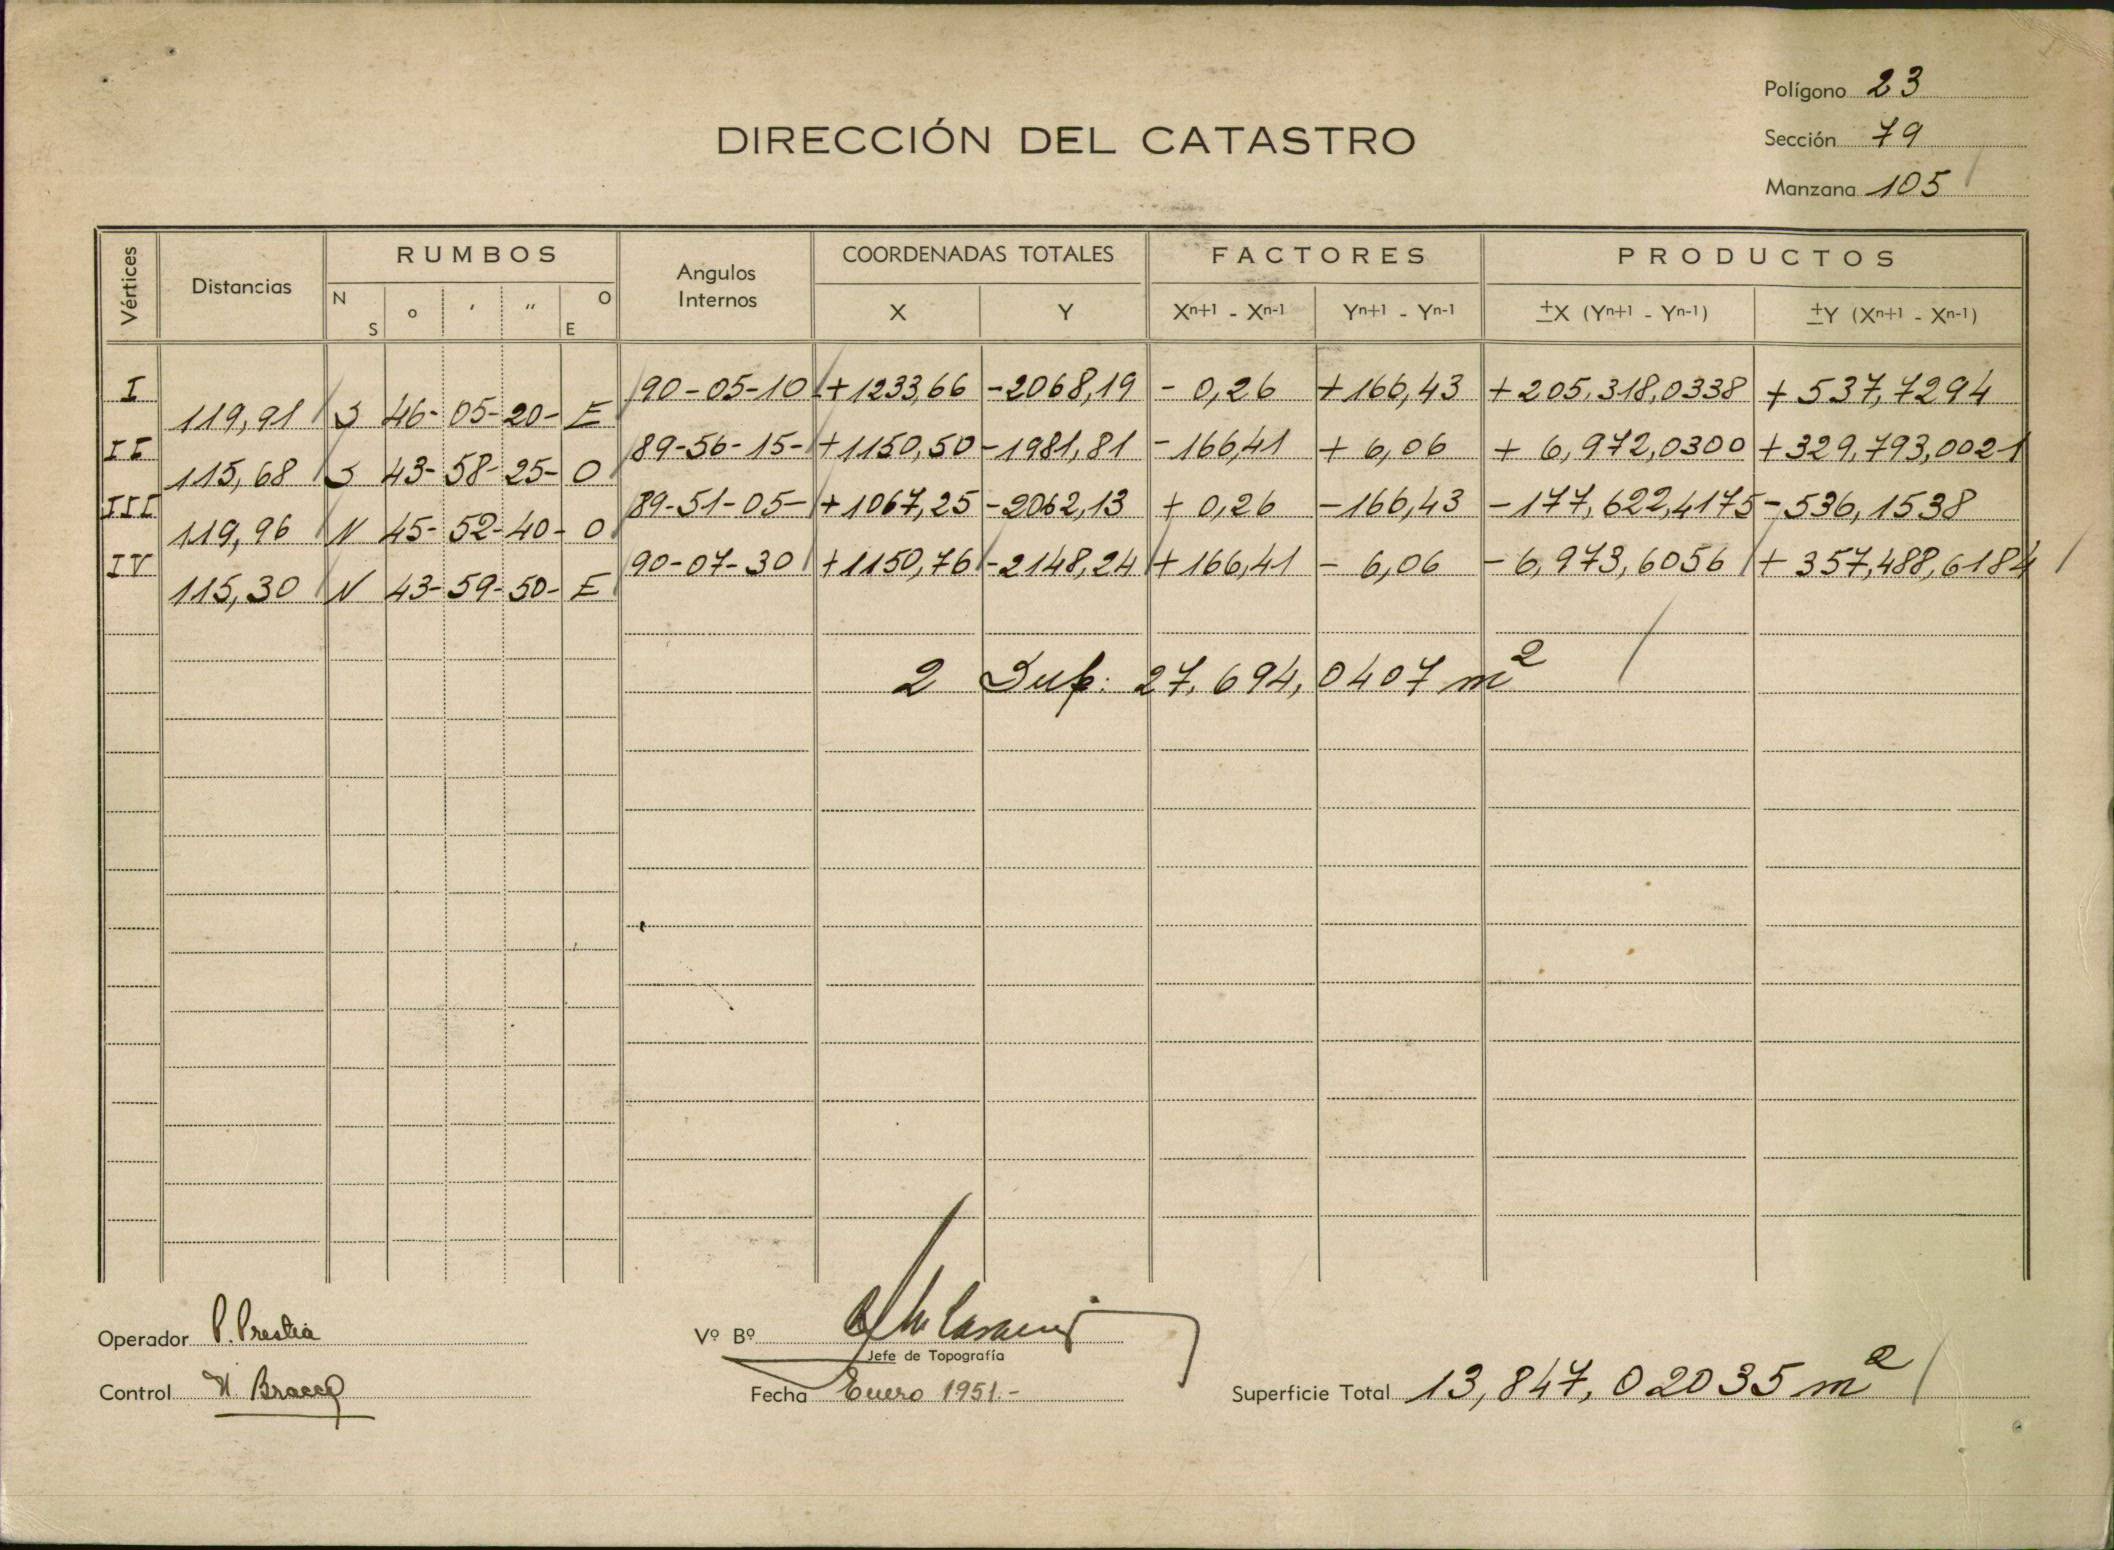 Polígono 23
DIRECCIÓN DEL CATASTRO
Sección 79
Manzana 105
Vértices Distancias RUMBOS Angulos Internos COORDENADAS TOTALES FACTORES PRODUCTOS
N S o ′ ″ O E X Y Xn+1 - Xn-1 Yn+1 - Yn-1 ±X (Yn+1 - Yn-1) ±Y (Xn+1 - Xn-1)
I 90-05-10 +1233,66 -2068,19 - 0,26 +166,43 +205.318,0338 + 537,7294
119,91 S 46- 05- 20- E
II 89-56-15- +1150,50 -1981,81 -166,41 + 6,06 + 6,972,0300 +329,793,0021
115,68 S 43- 58- 25- O
III 89-51-05- +1067,25 -2062,13 + 0,26 -166,43 -177,622,4175 -536,1538
119,96 N 45- 52- 40- O
IV 90-07-30 +1150,76 -2148,24 +166,41 - 6,06 - 6,973,6056 + 357,488,6184
115,30 N 43- 59- 50- E
2 Sup: 27.694,0407 m2
Operador P. Prestia
Vº Bº
Jefe de Topografía
Control Bracco
Fecha Enero 1951.-
Superficie Total 13,847,02035 m2